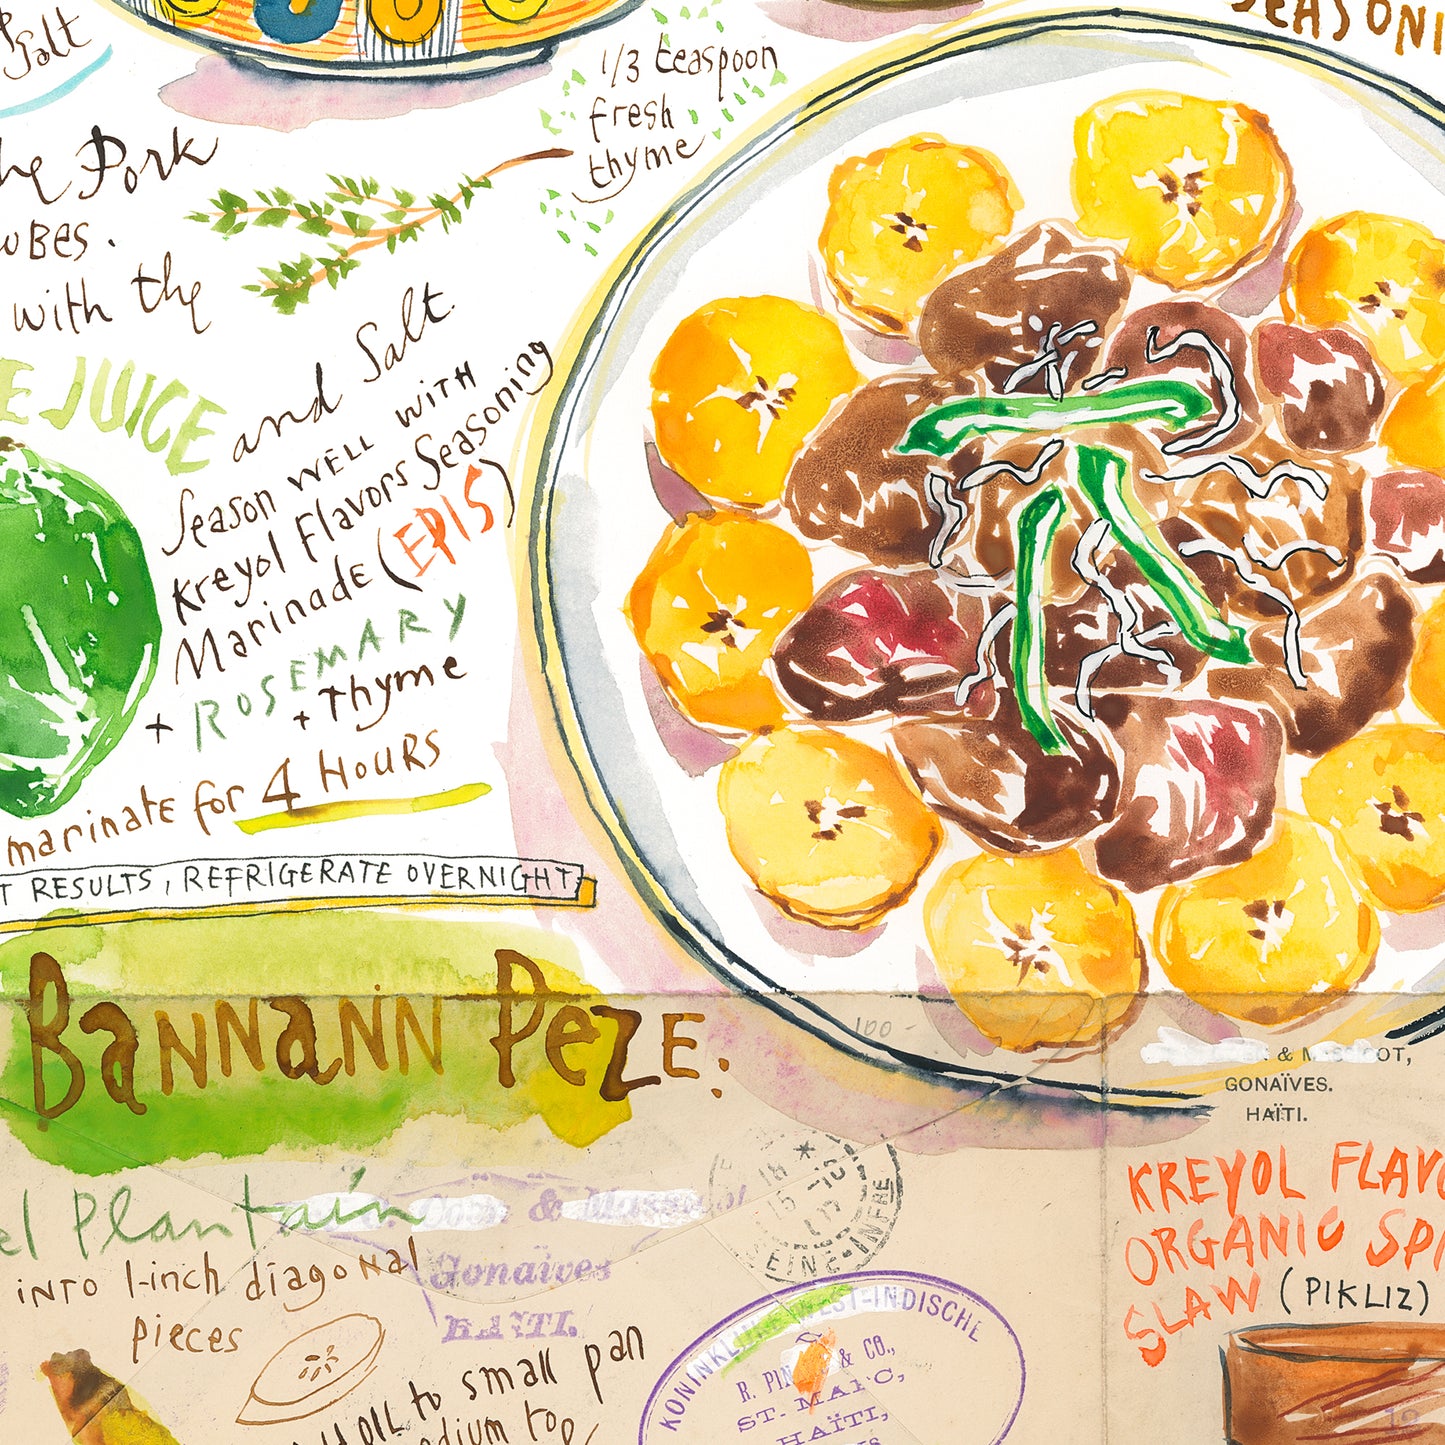 Salt
SEASONI
1/3 teaspoon
fresh
thyme
the Pork
cubes.
with the
E JUICE
and Salt.
Season WELL WITH
Kreyol Flavors Seasoning
Marinade (EPIS)
+ ROSEMARY
+ Thyme
marinate for 4 HOURS
T RESULTS, REFRIGERATE OVERNIGHT
BaNNaNN PeZE:
el Plantain
into 1-inch diagonal
pieces
oil to small pan
100 -
OT,
GONAÏVES.
HAÏTI.
& Masso
Gonaïves
HAÏTI.
SEINE-INFRE
KONINKLIJKE WEST-INDISCHE
& CO.,
ST. MARC,
HAÏTI,
KREYOL FLAVO
ORGANIC SPI
SLAW (PIKLIZ)